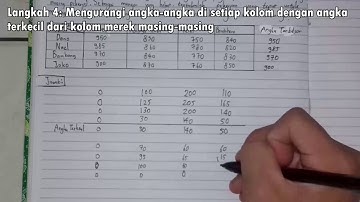 Langkah 4: Mengurangi angka-angka di setiap kolom dengan angka
terkecil dari kolom merek masing-masing
Angka Tambahan
Dono 950 850 750 840 950
Noel 985 860 780 820 985
Bambang 970 840 770 830 970
Joko 900 870 760 850 900
Jawab:
0 100 200 110
0 125 205 165
0 130 200 140
0 30 140 50
Angka Terkecil 0 30 140 50
0 70 60 60
0 95 65 115
0 100 60
0 0 0